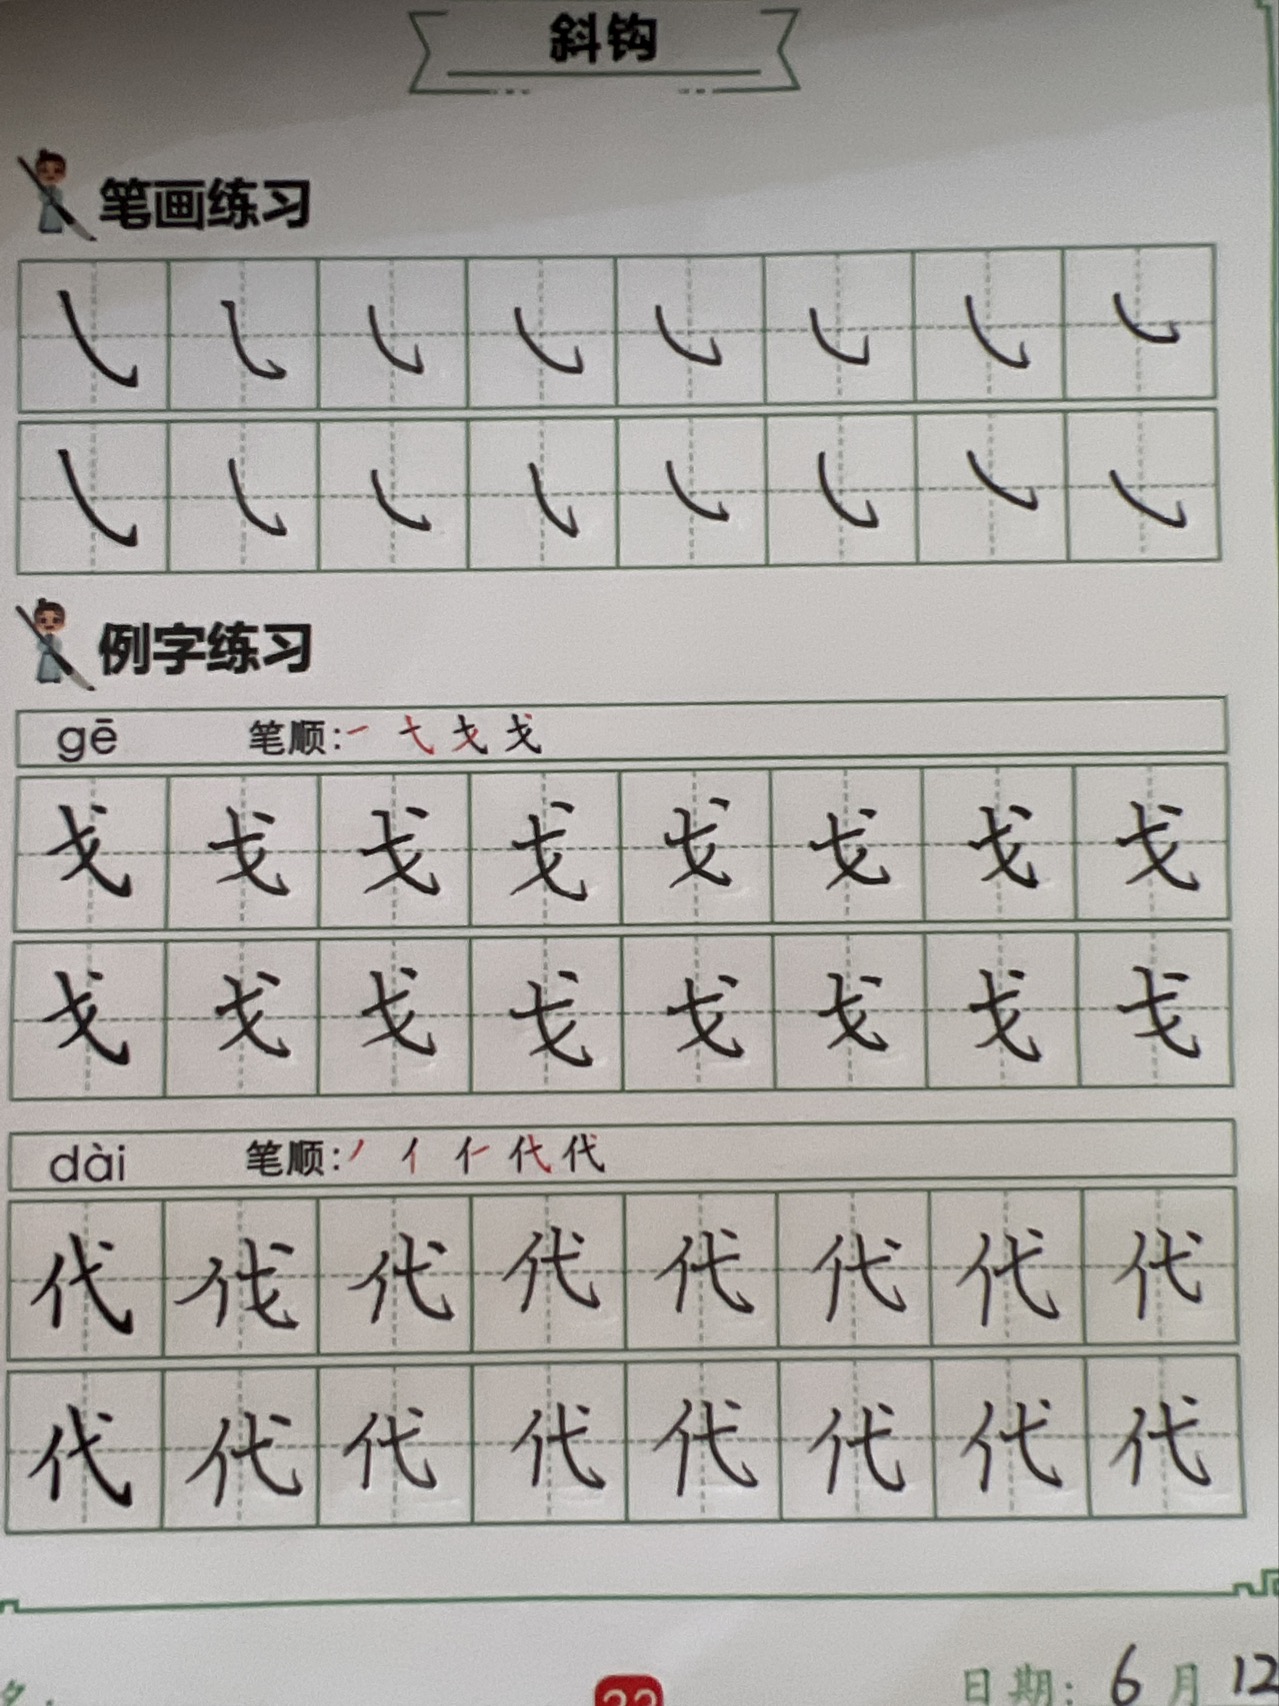 斜钩
笔画练习
㇂ ㇂ ㇂ ㇂ ㇂ ㇂ ㇂ ㇂
㇂ ㇂ ㇂ ㇂ ㇂ ㇂ ㇂ ㇂
例字练习
gē 笔顺:一 戈
戈 戈 戈 戈 戈 戈 戈 戈
戈 戈 戈 戈 戈 戈 戈 戈
dài 笔顺:丿 亻 代
代 伐 代 代 代 代 代 代
代 代 代 代 代 代 代 代
日期: 6 月 12